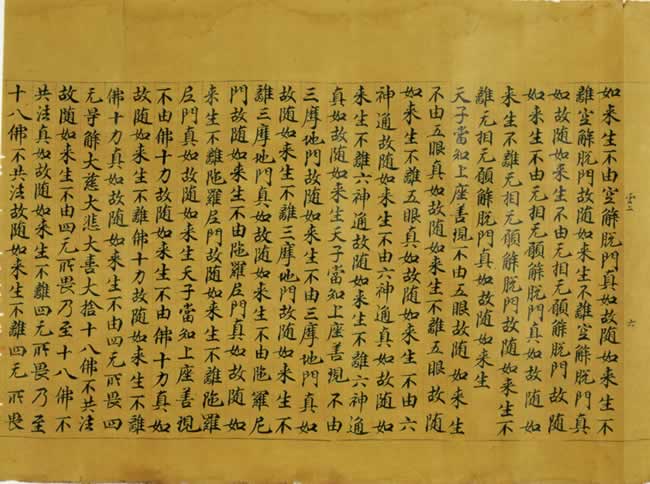 六
如来生不由空解脱門真如故随如来生不
離空解脱門故随如来生不離空解脱門真
如故随如来生不由无相无願解脱門故随
如来生不由无相无願解脱門真如故随如
来生不離无相无願解脱門故随如来生不
離无相无願解脱門真如故随如来生
天子當知上座善現不由五眼故随如来生
不由五眼真如故随如来生不離五眼故随
如来生不離五眼真如故随如来生不由六
神通故随如来生不由六神通真如故随如
来生不離六神通故随如来生不離六神通
真如故随如来生天子當知上座善現不由
三摩地門故随如来生不由三摩地門真如
故随如来生不離三摩地門故随如来生不
離三摩地門真如故随如来生不由陁羅尼
門故随如来生不由陁羅尼門真如故随如
来生不離陁羅尼門故随如来生不離陁羅
尼門真如故随如来生天子當知上座善現
不由佛十力故随如来生不由佛十力真如
故随如来生不離佛十力故随如来生不離
佛十力真如故随如来生不由四无所畏四
无㝵解大慈大悲大喜大捨十八佛不共法
故随如来生不由四无所畏乃至十八佛不
共法真如故随如来生不離四无所畏乃至
十八佛不共法故随如来生不離四无所畏